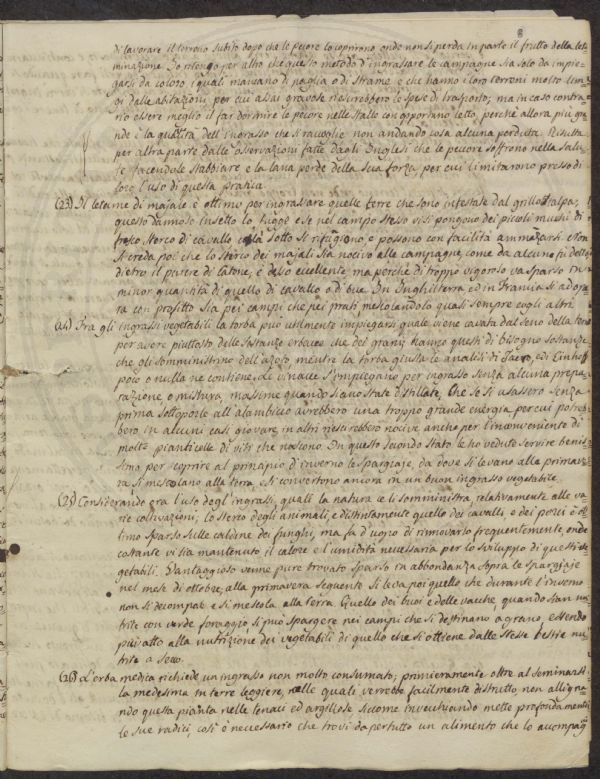 8
di lavorare il terreno subito dopo che le pecore lo coprirono onde non si perda in parte il frutto della leta
minazione. Io ritengo per altro che questo metodo d'ingrassare le campagne sia solo da impie
garsi da coloro i quali mancano di paglia o di strame e che hanno i loro terreni molto lun
gi dalle abitazioni, per cui assai gravose riescirebbero le spese di trasporto; ma in caso contra
rio essere meglio il far dormire le pecore nelle stalle con opportuno letto, perchè allora più gran
de è la quantità dell'ingrasso che si raccoglie non andando cosa alcuna perduta. Risulta
per altra parte dalle osservazioni fatte dagli Inglesi che le pecore soffrono nella salu
te facendole stabbiare e la lana perde della sua forza, per cui limitarono presso di
loro l'uso di questa pratica.
(23) Il letame di majale è ottimo per ingrassare quelle terre che sono infestate dal grillo talpa,
questo dannoso insetto lo fugge e se nel campo stesso vi si pongono dei piccoli mucchi di
fresco sterco di cavallo colà sotto si rifugiono, e possono con facilità ammazzarsi. Non
si creda poi che lo sterco dei majali sia nocivo alle campagne, come da alcuno fu detto
dietro il parere di Catone, è desso eccellente, ma perchè di troppo vigoroso va sparso in
minor quantità di quello di cavallo o di bue. In Inghilterra ed in Francia si adope
ra con profitto sia pei campi che pei prati mescolandolo quasi sempre cogli altri.
(24) Fra gli ingrassi vegetabili la torba può utilmente impiegarsi quale viene cavata dal seno della terra
per avere piuttosto delle sostanze erbacee che dei grani; hanno questi di bisogno sostanze
che gli somministrino dell'azoto mentre la torba giusta le analisi di ed Einhof
poco o nulla ne contiene. Le vinacce s'impiegano per ingrasso senza alcuna prepa
razione, o mistura, massime quando siano state distillate, che se si usassero senza
prima sottoporle all'alambicco avrebbero una troppo grande energia, per cui potreb
bero in alcuni casi giovare, in altri riescirebbero nocive anche per l'inconveniente di
molte pianticelle di viti che nascono. In questo secondo stato le ho vedute servire benis
simo per cuoprire al principio di inverno le sparagiaje, da dove si levano alla primave
ra si mescolano alla terra, e si convertono ancora in un buon ingrasso vegetabile.
(25) Considerando ora l'uso degl'ingrassi, quali la natura ce li somministra, relativamente alle va
rie coltivazioni, lo sterco degli animali, e distintamente quello dei cavalli e dei porci è ot
timo sparso sulle caldine dei funghi, ma fa d'uopo di rimovarlo frequentemente, onde
costante vi sia mantenuto il calore e l'umidità necessaria per lo sviluppo di questi ve
getabili. Vantaggioso venne pure trovato sparso in abbondanza sopra le sparagiaje
nel mese di ottobre, alla primavera seguente si leva poi quello che durante l'inverno
non si decompose e si mescola alla terra. Quello dei buoi e delle vacche, quando sian nu
trite con verde foraggio si può spargere nei campi che si destinano a grano, essendo
più atto alla nutrizione dei vegetabili di quello che si ottiene dalle stesse bestie nu
trite a secco.
(26) L'erba medica richiede un ingrasso non molto consumato; primieramente oltre al seminarsi
la medesima in terre leggiere, nelle quali verrebbe facilmente distrutto, non allignan
do questa pianta nelle tenaci ed argillose siccome invecchiando mette profondamente
le sue radici, così è necessario che trovi dapertutto un alimento che lo accompagn